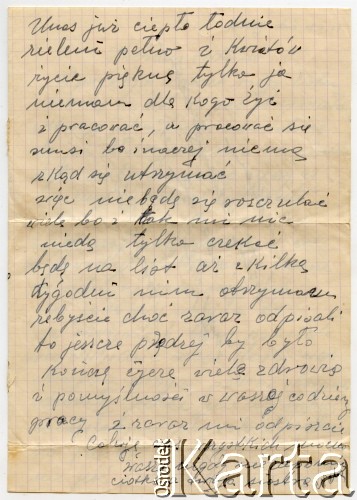 Unas już ciepło ładnie
zieleni pełno i Kwiatów
życie piękne tylko ja
niemam dla kogo żyć
i pracować, a pracować się
musi bo inaczej niema
zkąd się utrzymać
więc niebędę się rosczulać
bo i tak mi nic
nieda tylko czekać
będę na list aż Kilka
tygodni nim otrzymam
żebyście choć zaraz odpisali
to jeszcze prędzej by było
Kończę życzę wiele zdrowia
i pomyślności w waszej codziennej
pracy i zaraz mi odpiszcie
Całuję
Ośrodek
Karta